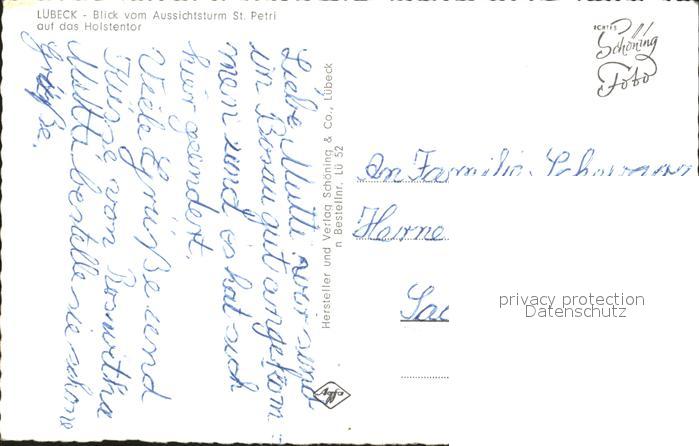 LÜBECK - Blick vom Aussichtsturm St. Petri
auf das Holstentor
Liebe Mutti wir sind
in Bosau gut angekom-
men und es hat sich
hier geändert.
Viele Grüße und
Küsse von Roswitha
Mutti bestelle sie schöne
Grüße.
Hersteller und Verlag Schöning & Co., Lübeck
n Bestellnr. Lü 52
Agfa
ECHTES
Schöning
Foto
An Familie
Herne
privacy protection
Datenschutz